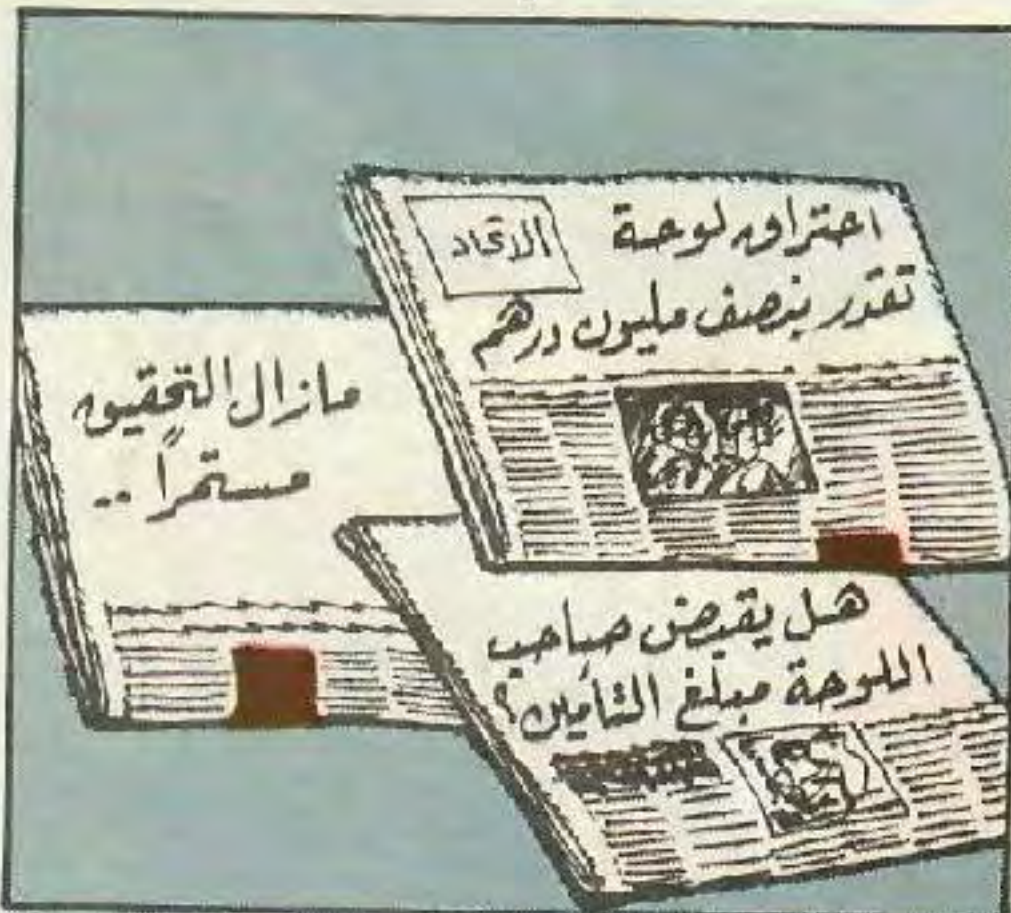 احتراق لوحة
الاتحاد
تقدر بنصف مليون درهم
مازال التحقيق
مستمراً ..
هل يقبض صاحب
اللوحة مبلغ التأمين؟